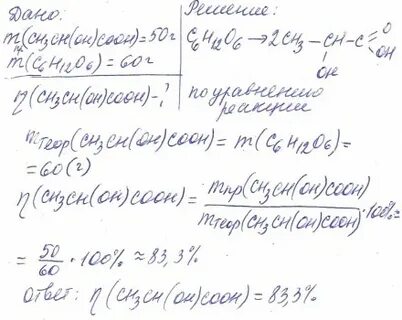 Дано:
m пр (CH3CH(OH)COOH)=50г
m(C6H12O6)=60г
η(CH3CH(OH)COOH)-?
Решение:
C6H12O6→2CH3-CH-C=O
OH
OH
по уравнению
реакции
mтеор(CH3CH(OH)COOH)=m(C6H12O6)=
=60(г)
η(CH3CH(OH)COOH)=mпр(CH3CH(OH)COOH)/mтеор(CH3CH(OH)COOH)·100%=
=50/60·100%≈83,3%
ответ: η(CH3CH(OH)COOH)=83,3%